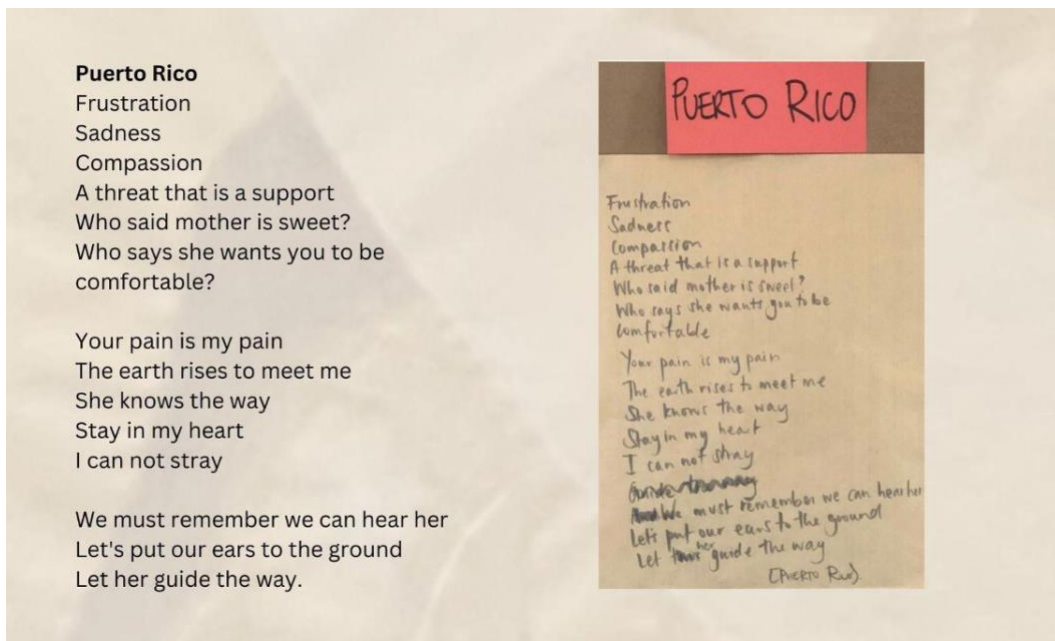 Puerto Rico
Frustration
Sadness
Compassion
A threat that is a support
Who said mother is sweet?
Who says she wants you to be
comfortable?
Your pain is my pain
The earth rises to meet me
She knows the way
Stay in my heart
I can not stray
We must remember we can hear her
Let's put our ears to the ground
Let her guide the way.
PUERTO RICO
Frustration
Sadness
Compassion
A threat that is a support
Who said mother is sweet?
Who says she wants you to be
Comfortable
Your pain is my pain
The earth rises to meet me
She knows the way
Stay in my heart
I can not stray
We must remember we can hear her
Let's put our ears to the ground
Let her guide the way
[PUERTO RICO]